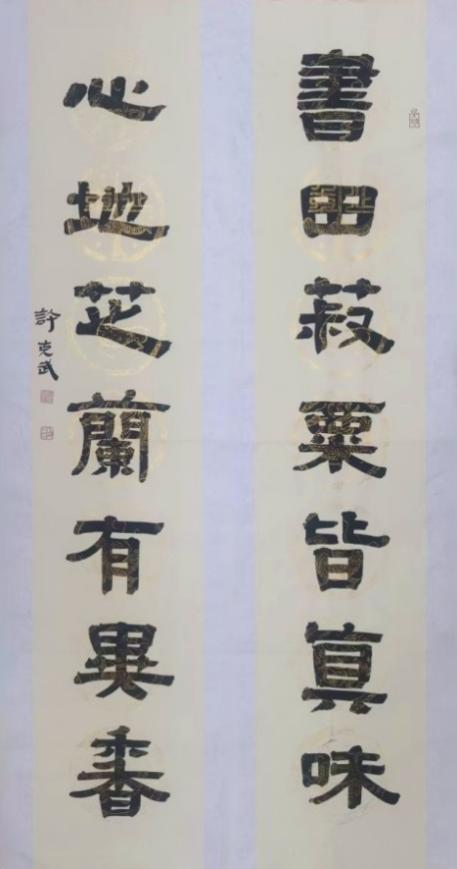 書田菽粟皆真味
心地芝蘭有異香
許克武